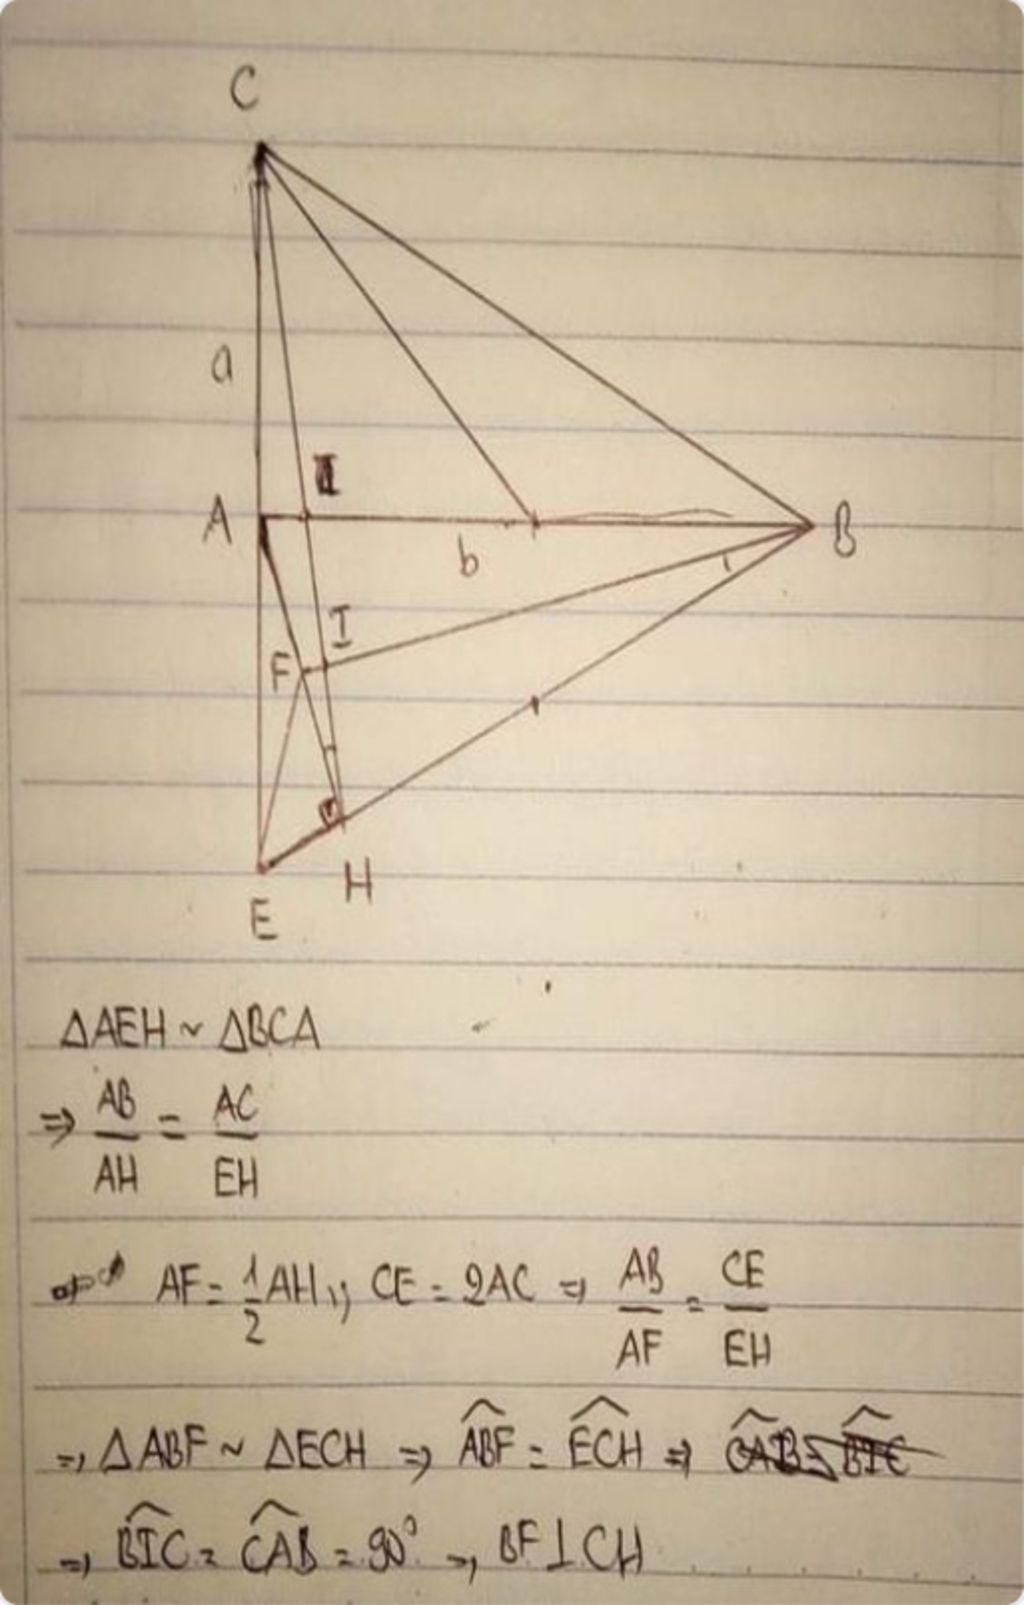 C
a
I
A
b
B
I
F
H
E
ΔAEH ~ ΔBCA
⇒ AB/AH = AC/EH
AF = 1/2 AH ; CE = 2AC ⇒ AB/AF = CE/EH
⇒ ΔABF ~ ΔECH ⇒ \widehat{ABF} = \widehat{ECH} ⇒
⇒ \widehat{BIC} = \widehat{CAB} = 90° ⇒ BF⊥CH